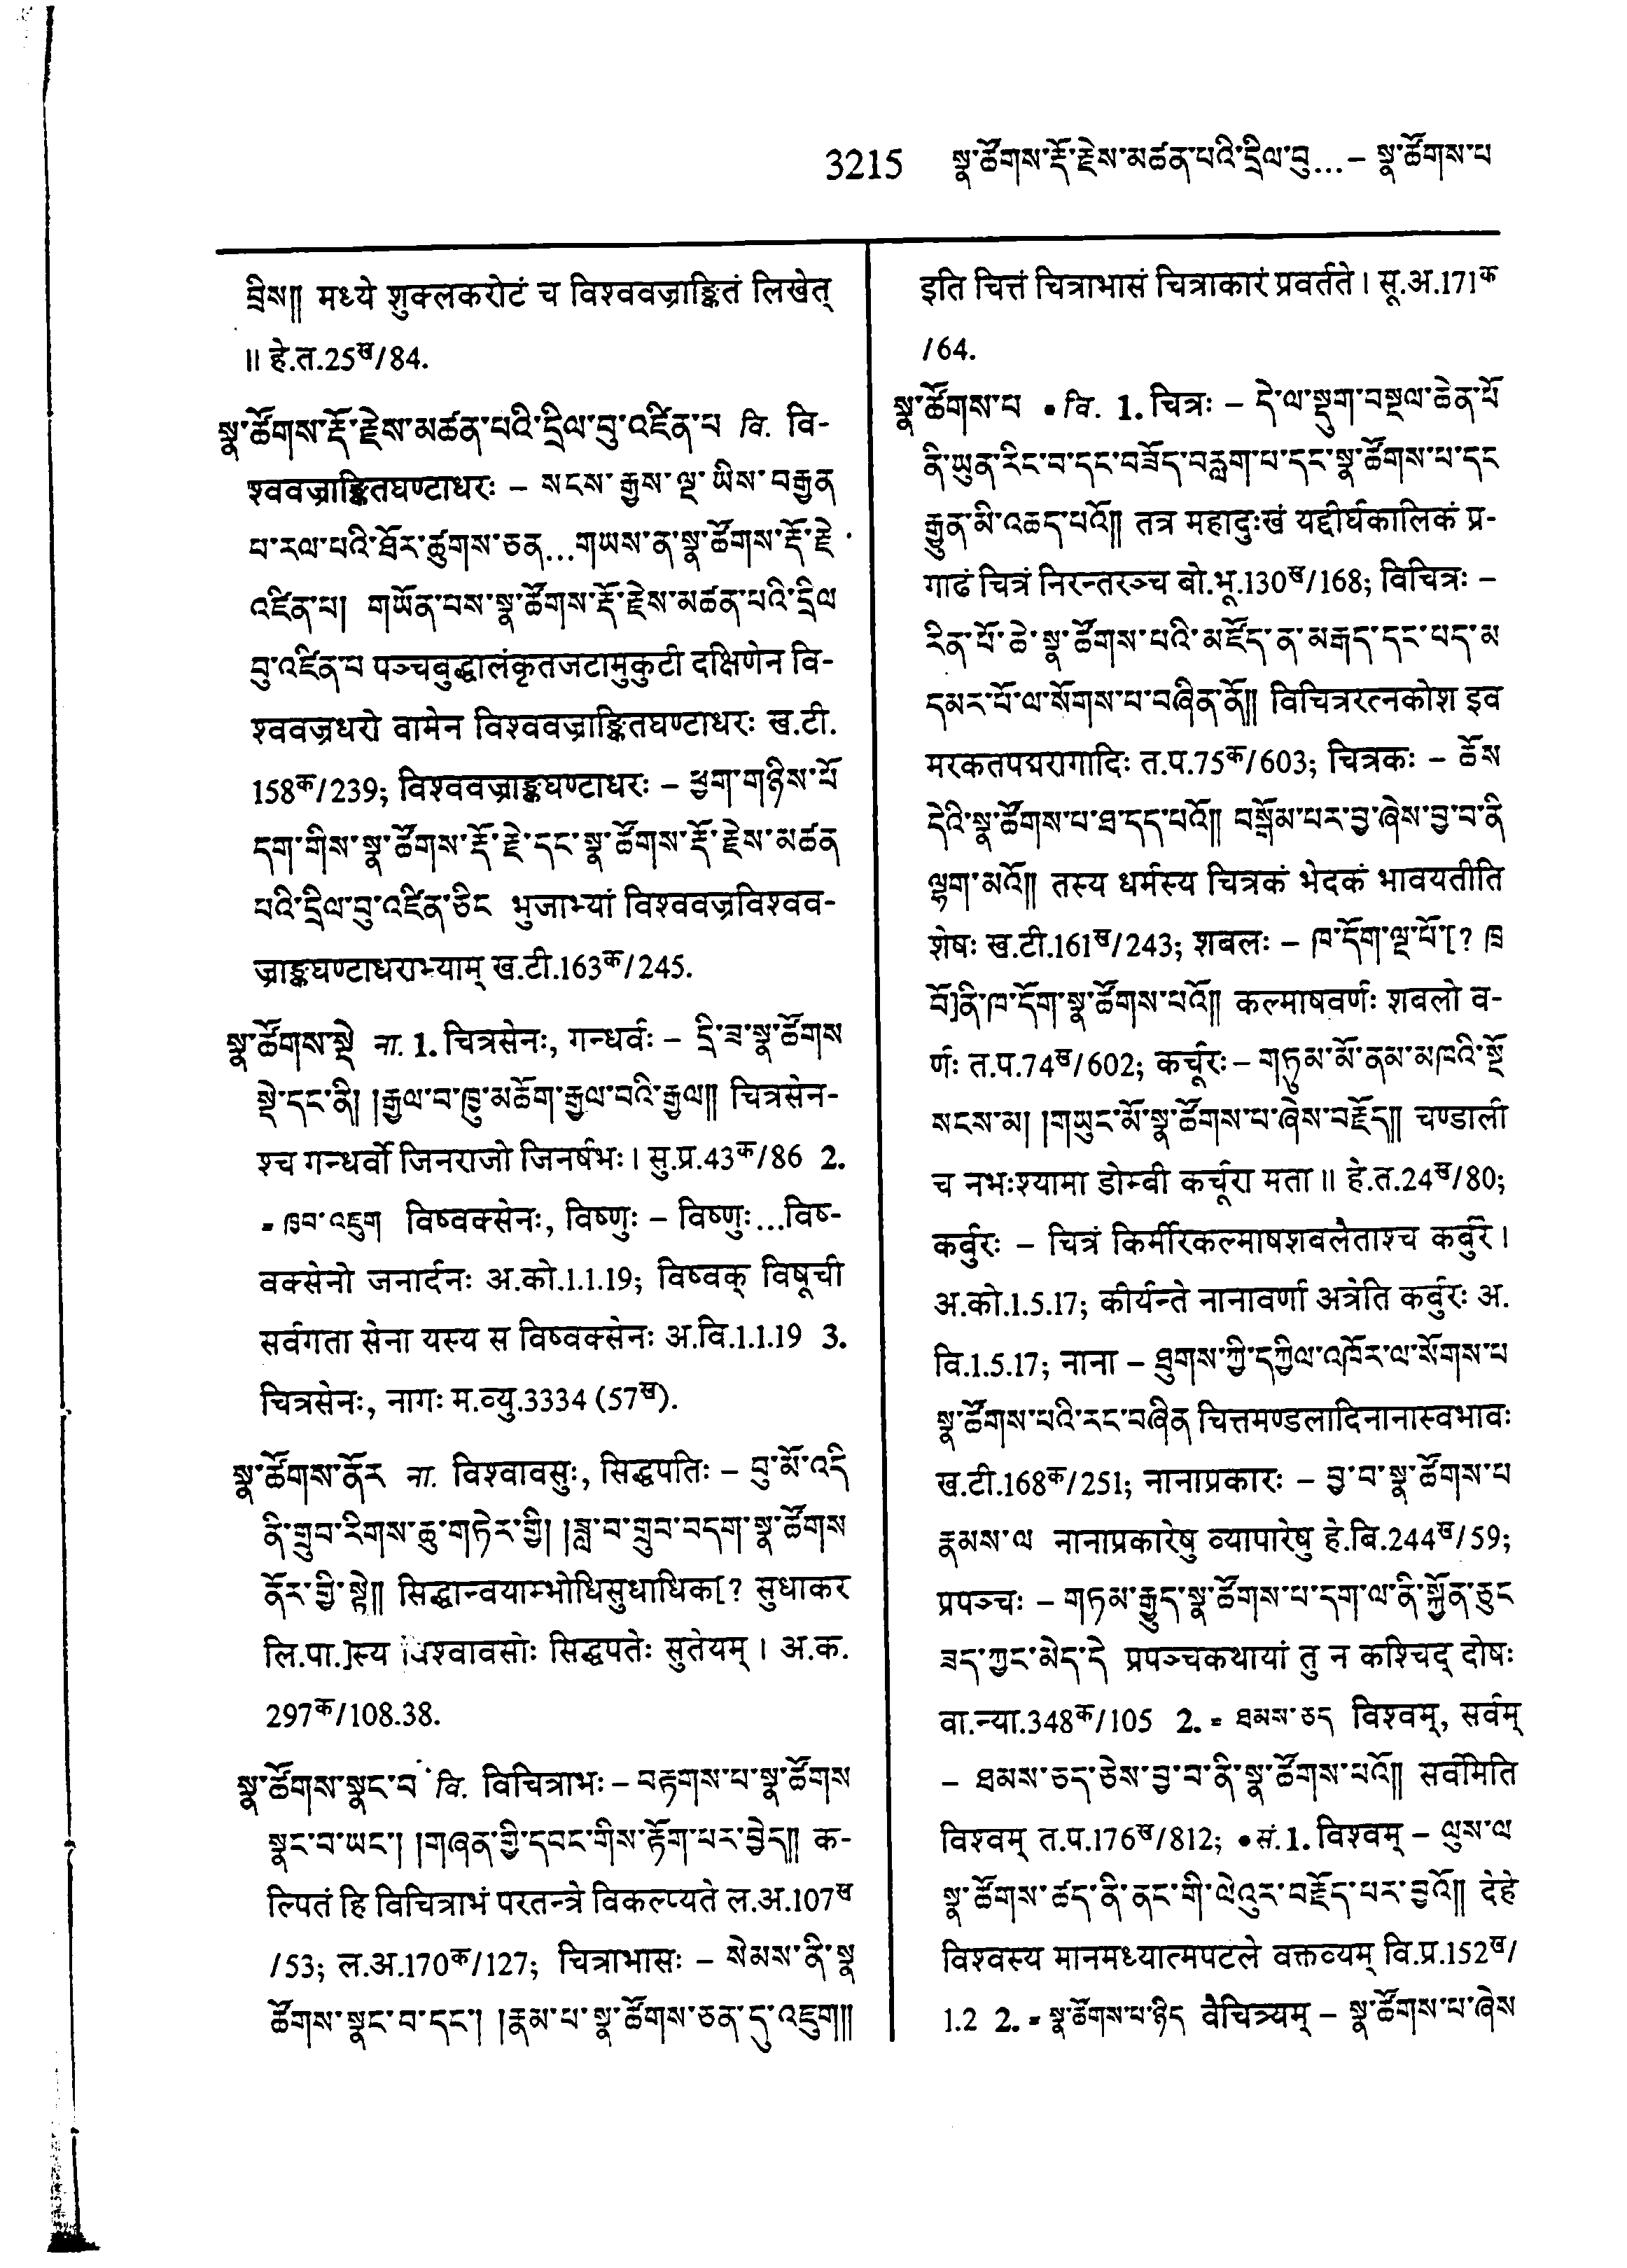 3215 སྣ་ཚོགས་རྡོ་རྗེས་མཚན་པའི་དྲིལ་བུ...– སྣ་ཚོགས་པ
བྲིས།། मध्ये शुक्लकरोटं च विश्ववज्राङ्कितं लिखेत्
॥ हे.त.25ख/84.
སྣ་ཚོགས་རྡོ་རྗེས་མཚན་པའི་དྲིལ་བུ་འཛིན་པ वि. वि-
श्ववज्राङ्कितघण्टाधरः – སངས་རྒྱས་ལྔ་ཡིས་བརྒྱན
པ་རལ་པའི་ཐོར་ཚུགས་ཅན...གཡས་ན་སྣ་ཚོགས་རྡོ་རྗེ
འཛིན་པ། གཡོན་པས་སྣ་ཚོགས་རྡོ་རྗེས་མཚན་པའི་དྲིལ
བུ་འཛིན་པ पञ्चबुद्धालंकृतजटामुकुटी दक्षिणेन वि-
श्ववज्रधरो वामेन विश्ववज्राङ्कितघण्टाधरः ख.टी.
158क/239; विश्ववज्राङ्कघण्टाधरः – ཕྱག་གཉིས་པོ
དག་གིས་སྣ་ཚོགས་རྡོ་རྗེ་དང་སྣ་ཚོགས་རྡོ་རྗེས་མཚན
པའི་དྲིལ་བུ་འཛིན་ཅིང भुजाभ्यां विश्ववज्रविश्वव-
ज्राङ्कघण्टाधराभ्याम् ख.टी.163क/245.
སྣ་ཚོགས་སྡེ ना. 1. चित्रसेनः, गन्धर्वः – དྲི་ཟ་སྣ་ཚོགས
སྡེ་དང་ནི། །རྒྱལ་བ་ཁྱུ་མཆོག་རྒྱལ་བའི་རྒྱལ།། चित्रसेन-
श्च गन्धर्वो जिनराजो जिनर्षभः। सु.प्र.43क/86 2.
= ཁབ་འཇུག विष्वक्सेनः, विष्णुः – विष्णुः...विष-
वक्सेनो जनार्दनः अ.को.1.1.19; विष्वक् विषूची
सर्वगता सेना यस्य स विष्वक्सेनः अ.वि.1.1.19 3.
चित्रसेनः, नागः म.व्यु.3334 (57ख).
སྣ་ཚོགས་ནོར ना. विश्वावसुः, सिद्धपतिः – བུ་མོ་འདི
ནི་གྲུབ་རིགས་ཆུ་གཏེར་གྱི། །ཟླ་བ་གྲུབ་བདག་སྣ་ཚོགས
ནོར་གྱི་སྟེ།། सिद्धान्वयाम्भोधिसुधाधिक[? सुधाकर
लि.पा.]स्य विश्वावसोः सिद्धपतेः सुतेयम्। अ.क.
297क/108.38.
སྣ་ཚོགས་སྣང་བ वि. विचित्राभः – བརྟགས་པ་སྣ་ཚོགས
སྣང་བ་ཡང་། །གཞན་གྱི་དབང་གིས་རྟོག་པར་བྱེད།། क-
ल्पितं हि विचित्राभं परतन्त्रे विकल्प्यते ल.अ.107ख
/53; ल.अ.170क/127; चित्राभासः – སེམས་ནི་སྣ
ཚོགས་སྣང་བ་དང་། །རྣམ་པ་སྣ་ཚོགས་ཅན་དུ་འཇུག།།
इति चित्तं चित्राभासं चित्राकारं प्रवर्तते। सू.अ.171क
/64.
སྣ་ཚོགས་པ • वि. 1. चित्रः – དེ་ལ་སྡུག་བསྔལ་ཆེན་པོ
ནི་ཡུན་རིང་བ་དང་བཟོད་བརླག་པ་དང་སྣ་ཚོགས་པ་དང
རྒྱུན་མི་འཆད་པའོ།། तत्र महादुःखं यद्दीर्घकालिकं प्र-
गाढं चित्रं निरन्तरञ्च बो.भू.130ख/168; विचित्रः –
རིན་པོ་ཆེ་སྣ་ཚོགས་པའི་མཛོད་ན་མརྒད་དང་པད་མ
དམར་པོ་ལ་སོགས་པ་བཞིན་ནོ།། विचित्ररत्नकोश इव
मरकतपद्मरागादिः त.प.75क/603; चित्रकः – ཆོས
དེའི་སྣ་ཚོགས་པ་ཐ་དད་པའོ།། བསྒོམ་པར་བྱ་ཞེས་བྱ་བ་ནི
ལྷག་མའོ།། तस्य धर्मस्य चित्रकं भेदकं भावयतीति
शेषः ख.टी.161ख/243; शबलः – ཁ་དོག་ལྔ་པོ་[? ཁྲ
བོ]ནི་ཁ་དོག་སྣ་ཚོགས་པའོ།། कल्माषवर्णः शबलो व-
र्णः त.प.74ख/602; कर्चूरः – གཏུམ་མོ་ནམ་མཁའི་སྔོ
སངས་མ། །གཡུང་མོ་སྣ་ཚོགས་པ་ཞེས་བརྗོད།། चण्डाली
च नभःश्यामा डोम्बी कर्चूरा मता॥ हे.त.24ख/80;
कर्वुरः – चित्रं किर्मीरकल्माषशवलैताश्च कर्वुरे।
अ.को.1.5.17; कीर्यन्ते नानावर्णा अत्रेति कर्बुरः अ.
वि.1.5.17; नाना – ཐུགས་ཀྱི་དཀྱིལ་འཁོར་ལ་སོགས་པ
སྣ་ཚོགས་པའི་རང་བཞིན चित्तमण्डलादिनानास्वभावः
ख.टी.168क/251; नानाप्रकारः – བྱ་བ་སྣ་ཚོགས་པ
རྣམས་ལ नानाप्रकारेषु व्यापारेषु हे.बि.244ख/59;
प्रपञ्चः – གཏམ་རྒྱུད་སྣ་ཚོགས་པ་དག་ལ་ནི་སྐྱོན་ཅུང
ཟད་ཀྱང་མེད་དེ प्रपञ्चकथायां तु न कश्चिद् दोषः
वा.न्या.348क/105 2. = ཐམས་ཅད विश्वम्, सर्वम्
– ཐམས་ཅད་ཅེས་བྱ་བ་ནི་སྣ་ཚོགས་པའོ།། सर्वमिति
विश्वम् त.प.176ख/812; • सं. 1. विश्वम् – ལུས་ལ
སྣ་ཚོགས་ཚད་ནི་ནང་གི་ལེའུར་བརྗོད་པར་བྱའོ།། देहे
विश्वस्य मानमध्यात्मपटले वक्तव्यम् वि.प्र.152ख/
1.2 2. = སྣ་ཚོགས་པ་ཉིད वैचित्र्यम् – སྣ་ཚོགས་པ་ཞེས